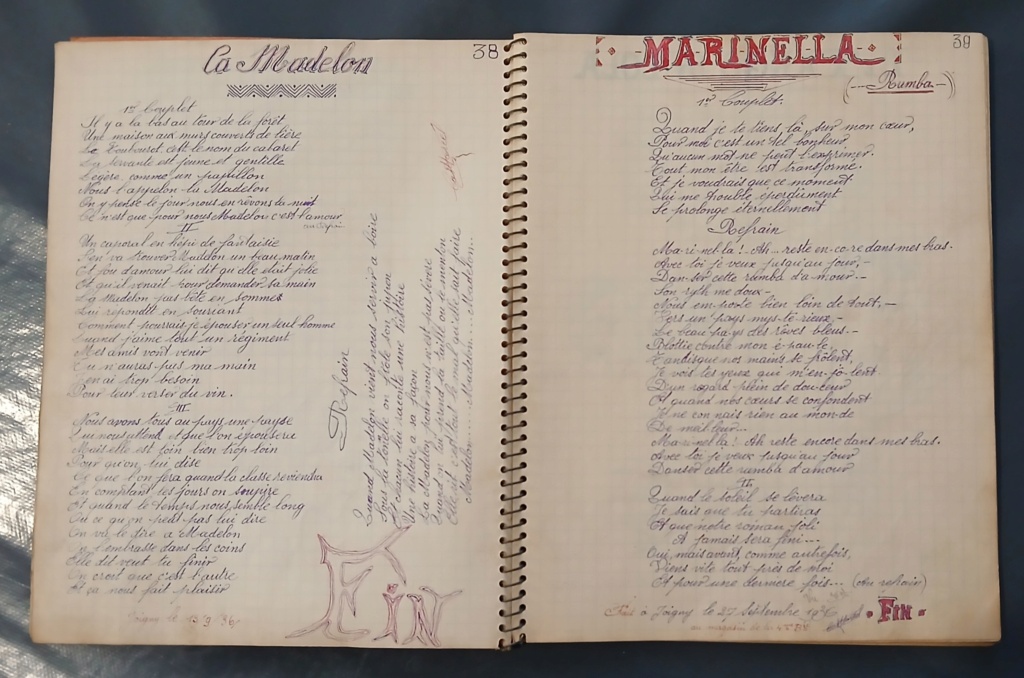 La Madelon
38
1er Couplet
Il y a la bas au tour de la forêt
Une maison aux murs couverts de lière
Le Tourlourou c'est le nom du cabaret
La servante est jeune et gentille
Legère comme un papillon
Nous l'appelon la Madelon
On y pense le jour nous en rêvons la nuit
Ce n'est que pour nous Madelon c'est l'amour
au refrain
II
Un caporal en képi de fantaisie
S'en va trouver Madelon un beau matin
Et fou d'amour lui dit qu'elle était jolie
Et qu'il venait pour demander sa main
La Madelon pas bête en somme
Lui repondit en souriant
Comment pourrais je épouser un seul homme
Quand j'aime tout un régiment
Mes amis vont venir
Tu n'auras pas ma main
J'en ai trop besoin
Pour leur verser du vin.
III
Nous avons tous au pays une payse
Qui nous attend et que l'on épousera
Mais elle est loin bien trop loin
Pour qu'on lui dise
Ce que l'on fera quand la classe reviendra
En comptant les jours on soupire
Et quand le temps nous semble long
Où ce qu'on peut pas lui dire
On va le dire a Madelon
On l'embrasse dans les coins
Elle dit veut tu finir
On croit que c'est l'autre
Et ça nous fait plaisir
Joigny le 13 9 36
Refrain
Quand Madelon vient nous servir a boire
Sous la tonelle on frôle son jupon
Et chacun lui raconte une histoire
Une histoire a sa façon
La Madelon pour nous n'est pas severe
Quand on lui prend la taille ou le menton
Elle rit c'est tout le mal qu'elle sait faire
Madelon.... Madelon.... Madelon...
Fin
MARINELLA
39
(- Rumba. -)
1er Couplet.
Quand je te tiens, là, sur mon cœur,
Pour moi c'est un tel bonheur
Qu'aucun mot ne peut l'exprimer.
Tout mon être est transformé.
Et je voudrais que ce moment
Qui me trouble éperdument
Se prolonge éternellement
Refrain
Ma-ri-nel-la! Ah... reste en-co-re dans mes bras.
Avec toi je veux jusqu'au jour,-
Dan-ser cette rumba d'a-mour.-
Son ryth-me doux-
Nous em-porte bien loin de tout,-
Vers un pays mys-té-rieux,-
Le beau pa-ys des rêves bleus.-
Blottie contre mon é-pau-le,
Tandis que nos mains se frôlent,
Je vois tes yeux qui m'en-jô-lent
D'un regard plein de dou-ceur
Et quand nos cœurs se confondent
Je ne con nais rien au mon-de
De meilleur...
Ma-ri-nel-la! Ah reste encore dans mes bras.
Avec toi je veux jusqu'au jour
Danser cette rumba d'amour
II
Quand le soleil se lèvera
Je sais que tu partiras
Et que notre roman joli
A jamais sera fini...
Oui, mais avant, comme autrefois,
Viens vite tout près de moi
Et pour une dernière fois... (au refrain)
Fait a Joigny le 27 Septembre 1936
FIN